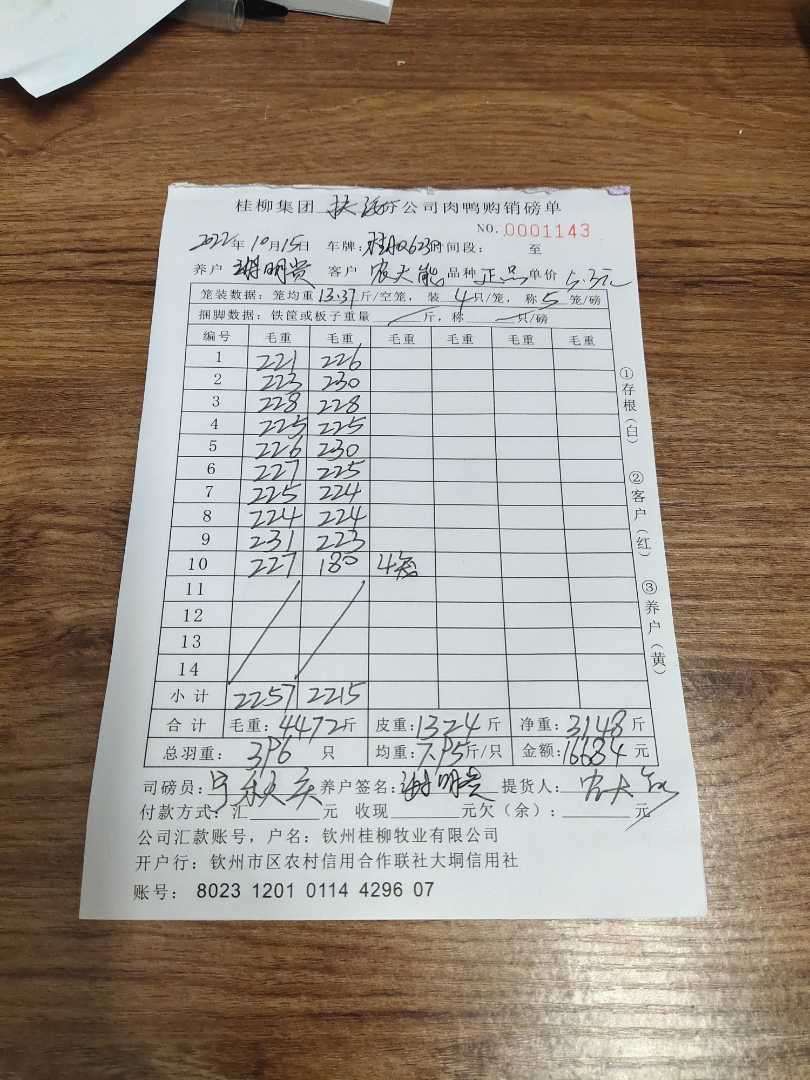 桂柳集团 扶 分公司肉鸭购销磅单
NO. 0001143
2022年10月15日 车牌: 时间段: 至
养户 谢明贵 客户 农大能 品种 正品 单价 5.3元
笼装数据: 笼均重13.37斤/空笼, 装 4只/笼, 称5 笼/磅
捆脚数据: 铁筐或板子重量 斤, 称 只/磅
编号 毛重 毛重 毛重 毛重 毛重 毛重
1 221 226
2 223 230
3 228 228
4 225 225
5 226 230
6 227 225
7 225 224
8 224 224
9 231 223
10 227 180 4笼
11
12
13
14
小计 2257 2215
合计 毛重:4472斤 皮重:1324斤 净重:3148斤
总羽重: 396 只 均重:7.95斤/只 金额:16684元
司磅员: 养户签名:谢明贵 提货人:农大能
付款方式:汇 元 收现 元欠(余): 元
公司汇款账号, 户名: 钦州桂柳牧业有限公司
开户行: 钦州市区农村信用合作联社大垌信用社
账号: 8023 1201 0114 4296 07
①存根(白)
②客户(红)
③养户(黄)